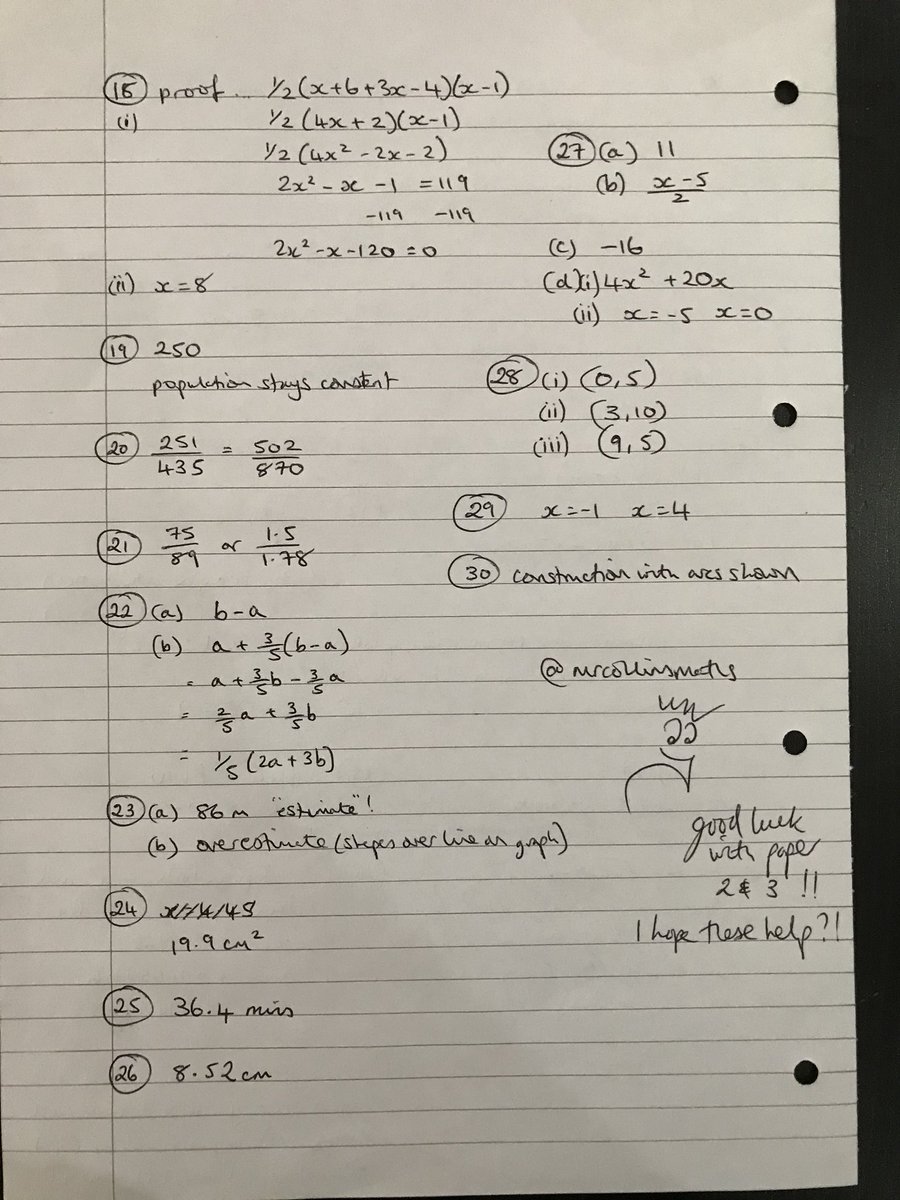 18 proof... ½(x+6+3x-4)(x-1)
(i) ½(4x+2)(x-1)
½(4x² -2x-2)
2x² - x -1 = 119
-119 -119
2x² -x-120 = 0
(ii) x = 8
19 250
population stays constant
20 251/435 = 502/870
21 75/89 or 1.5/1.78
22 (a) b-a
(b) a + 3/5(b-a)
= a + 3/5b - 3/5a
= 2/5a + 3/5b
= 1/5(2a+3b)
23 (a) 86m "estimate"!
(b) overestimate (steps over line on graph)
24
19.9 cm²
25 36.4 mins
26 8.52 cm
27 (a) 11
(b) x-5/2
(c) -16
(d)(i) 4x² + 20x
(ii) x = -5 x = 0
28 (i) (0,5)
(ii) (3,10)
(iii) (9,5)
29 x = -1 x = 4
30 construction with arcs shown
@mrcollinsmaths
good luck
with paper
2 & 3 !!
I hope these help?!